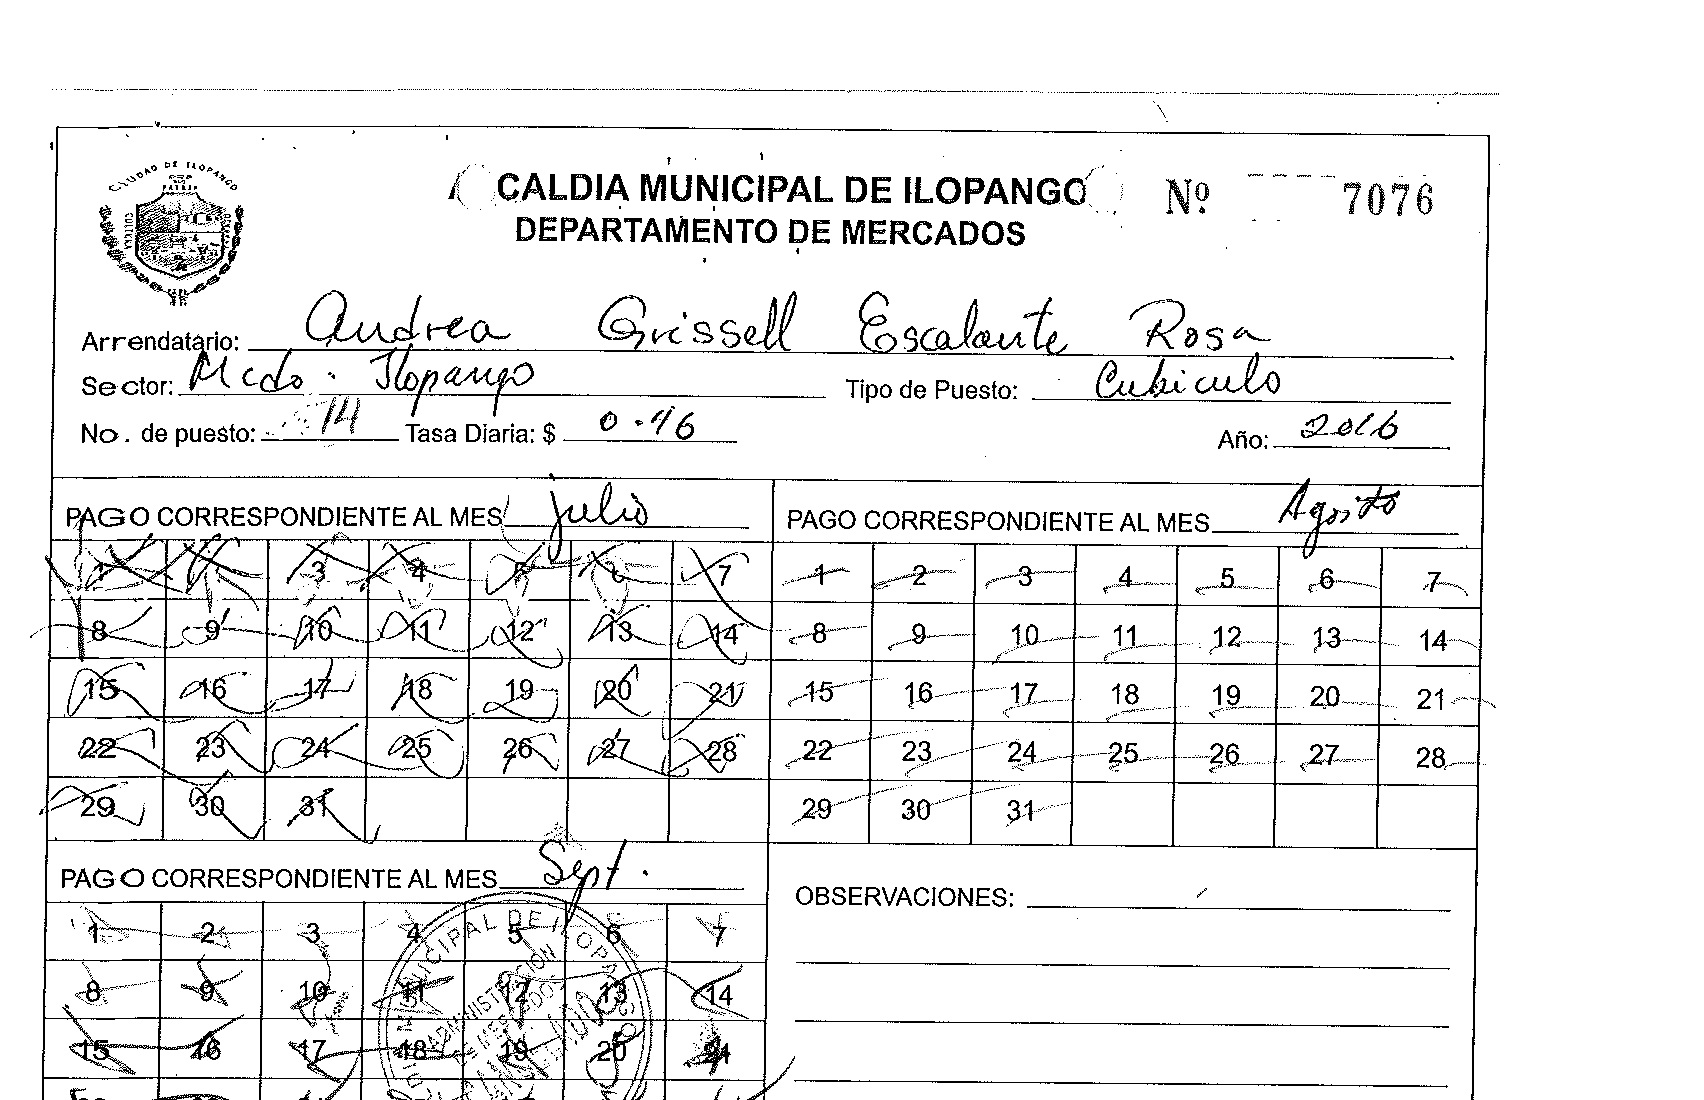 CIUDAD DE ILOPANGO
CALDIA MUNICIPAL DE ILOPANGO Nº 7076
DEPARTAMENTO DE MERCADOS
Arrendatario: Andrea Grissell Escalante Rosa
Sector: Mcdo. Ilopango Tipo de Puesto: Cubiculo
No. de puesto: 14 Tasa Diaria: $ 0.46 Año: 2016
PAGO CORRESPONDIENTE AL MES julio
1 3 4 5 6 7
8 9 10 11 12 13 14
15 16 17 18 19 20 21
22 23 24 25 26 27 28
29 30 31
PAGO CORRESPONDIENTE AL MES Agosto
1 2 3 4 5 6 7
8 9 10 11 12 13 14
15 16 17 18 19 20 21
22 23 24 25 26 27 28
29 30 31
PAGO CORRESPONDIENTE AL MES Sept.
1 2 3 4 5 6 7
8 9 10 11 12 13 14
15 16 17 18 19 20 21
OBSERVACIONES:
ADMINISTRACION